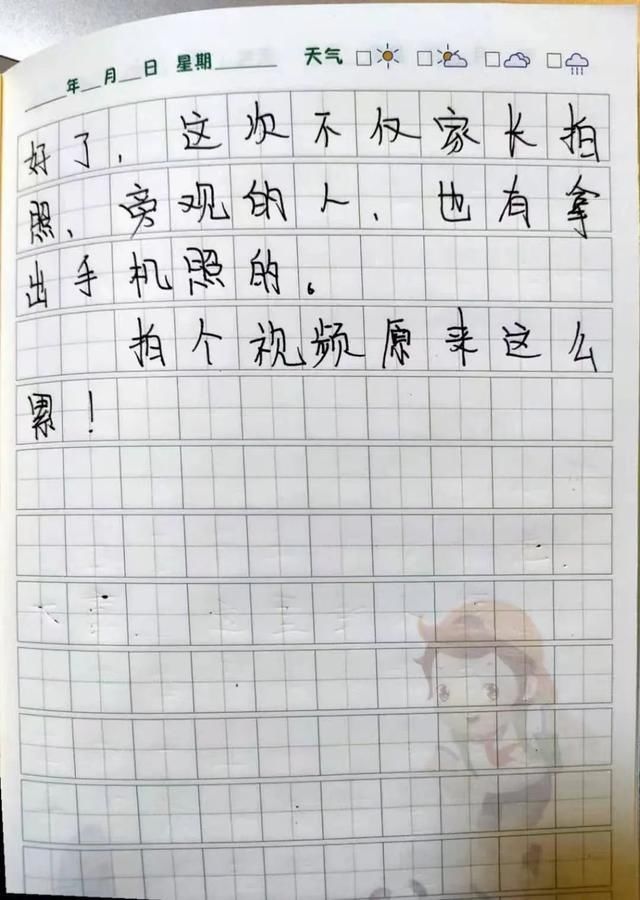 ____年__月__日 星期______ 天气 □ □ □ □
好了，这次不仅家长拍
照、旁观的人，也有拿
出手机照的。
拍个视频原来这么
累！